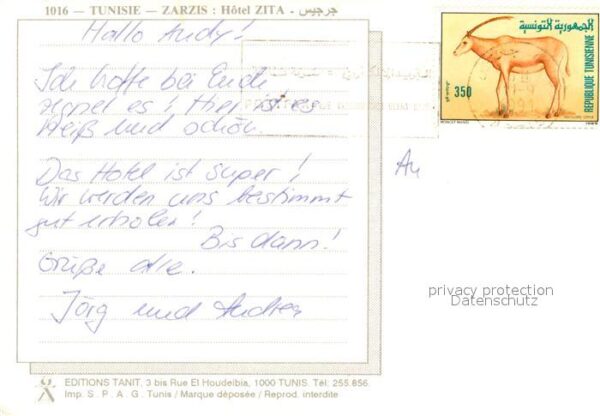 1016 - TUNISIE - ZARZIS : Hôtel ZITA - جرجيس
Hallo Andy!
Ich hoffe bei Euch
es! Hier ist es
Heiß und schön.
Das Hotel ist super!
Wir werden uns bestimmt
gut erholen!
Bis dann!
Grüße
Jörg und Andrea
An
الجمهورية التونسية
350
REPUBLIQUE TUNISIENNE
privacy protection
Datenschutz
EDITIONS TANIT, 3 bis Rue El Houdeibia, 1000 TUNIS. Tél: 255.856.
Imp. S. P. A. G. Tunis / Marque déposée / Reprod. interdite